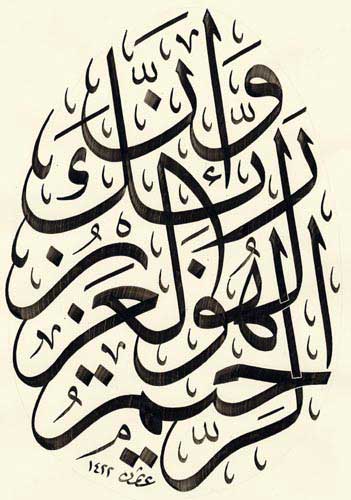 وَإِنَّ
رَبَّكَ
لَهُوَ الْعَزِيزُ
الرَّحِيمُ
عثمن ١٤٢٢